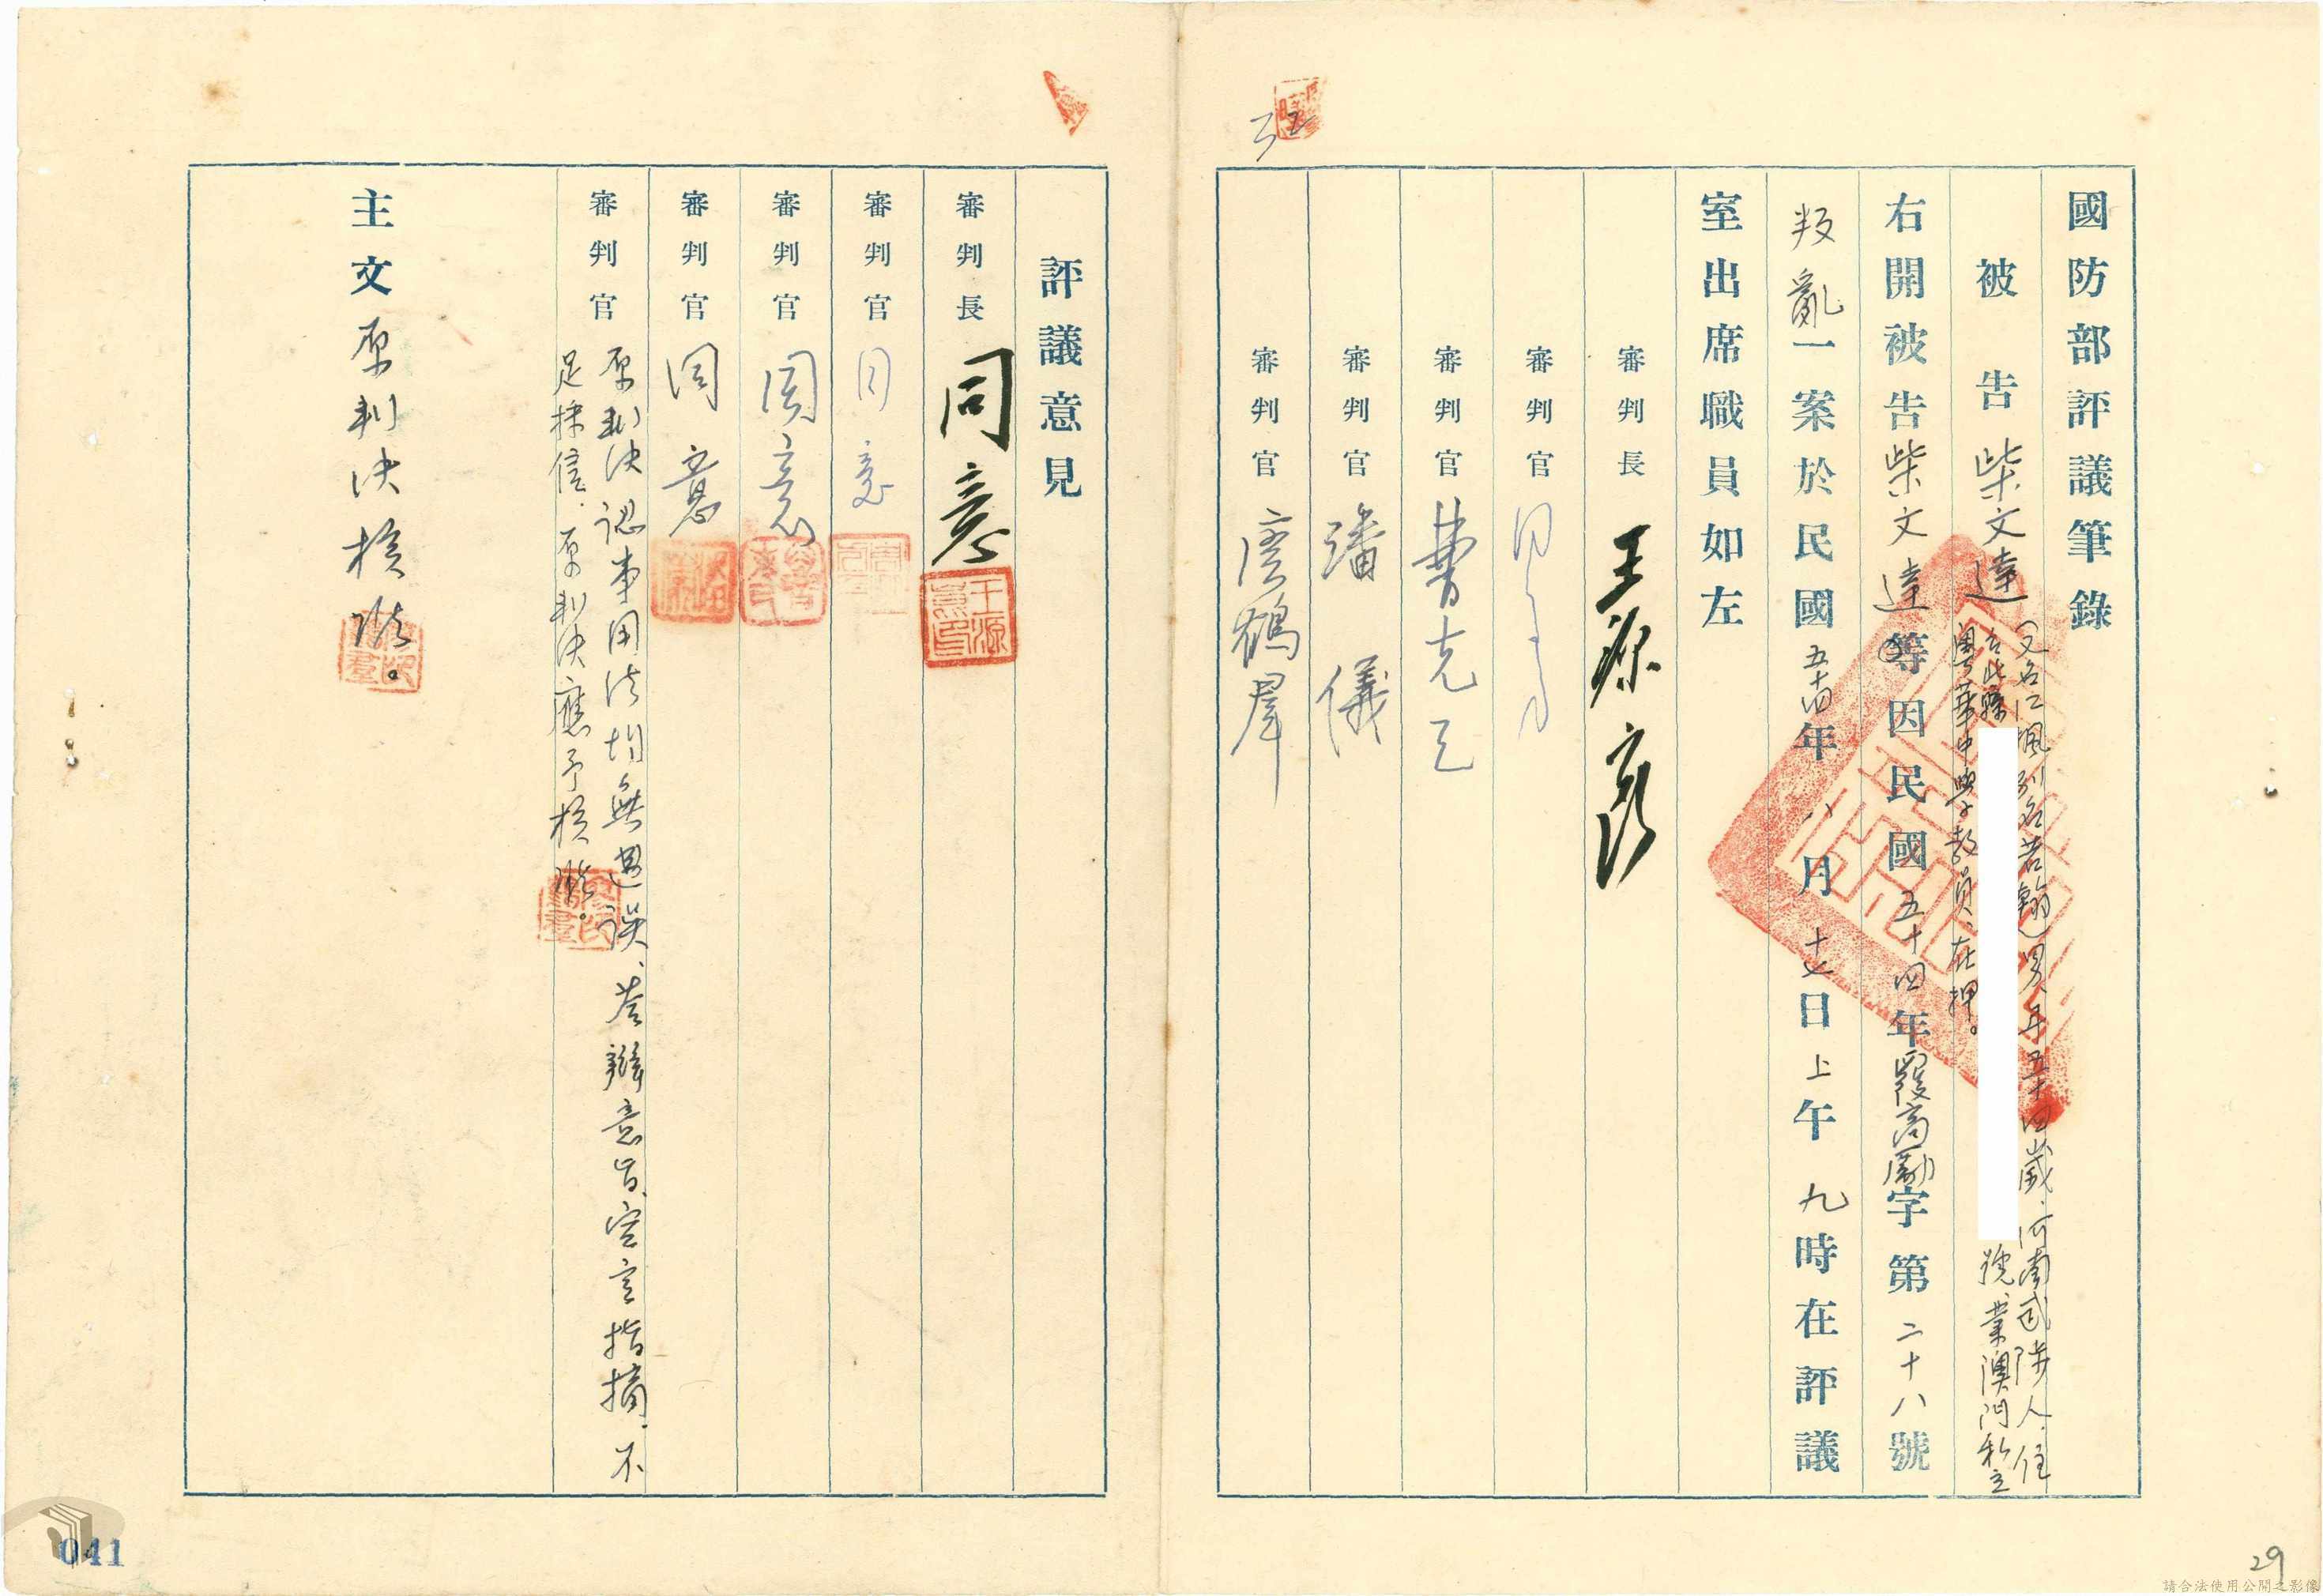 國防部評議筆錄
被告 柴文達
(又名江楓別名若翰)男、年五十四歲、河南武陟人、住
台北縣 號、業澳門私立
粵華中學教員、在押。
右開被告柴文達等因民國五十四年覆高勵字第二十八號
叛亂一案於民國五十四年八月十七日上午九時在評議
室出席職員如左
審判長 王源
審判官
審判官 曹克
審判官 潘儀
審判官 廖鶴群
評議意見
審判長 同意
審判官 同意
審判官 同意
審判官 同意
審判官 原判決認事用法均無違誤、答辯意旨、空言指摘、不
足採信、原判決應予核准。
主文 原判決核准。
041
29
請合法使用公開之影像